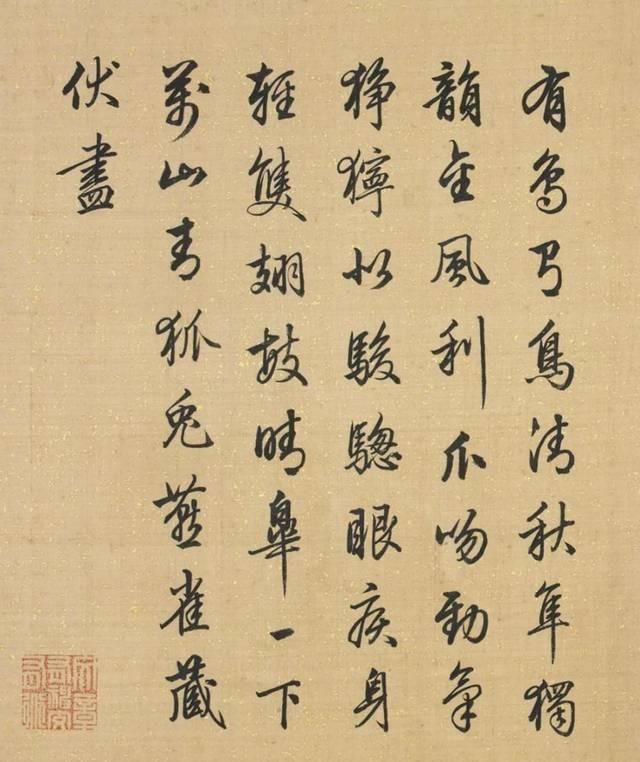 有鳥有鳥清秋隼獨
韻金風利爪吻勁氣
猙獰似駿驄眼疾身
輕雙翅鼓晴皐一下
萬山青狐兔燕雀藏
伏盡